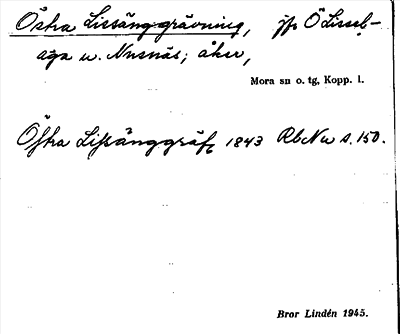 Östra Lissänggrävning, jfr Ö Lissel-
aga u. Nusnäs; åker,
Mora sn o. tg, Kopp. l.
Östra Lissänggräf 1843 Rb Nu s. 150.
Bror Lindén 1945.